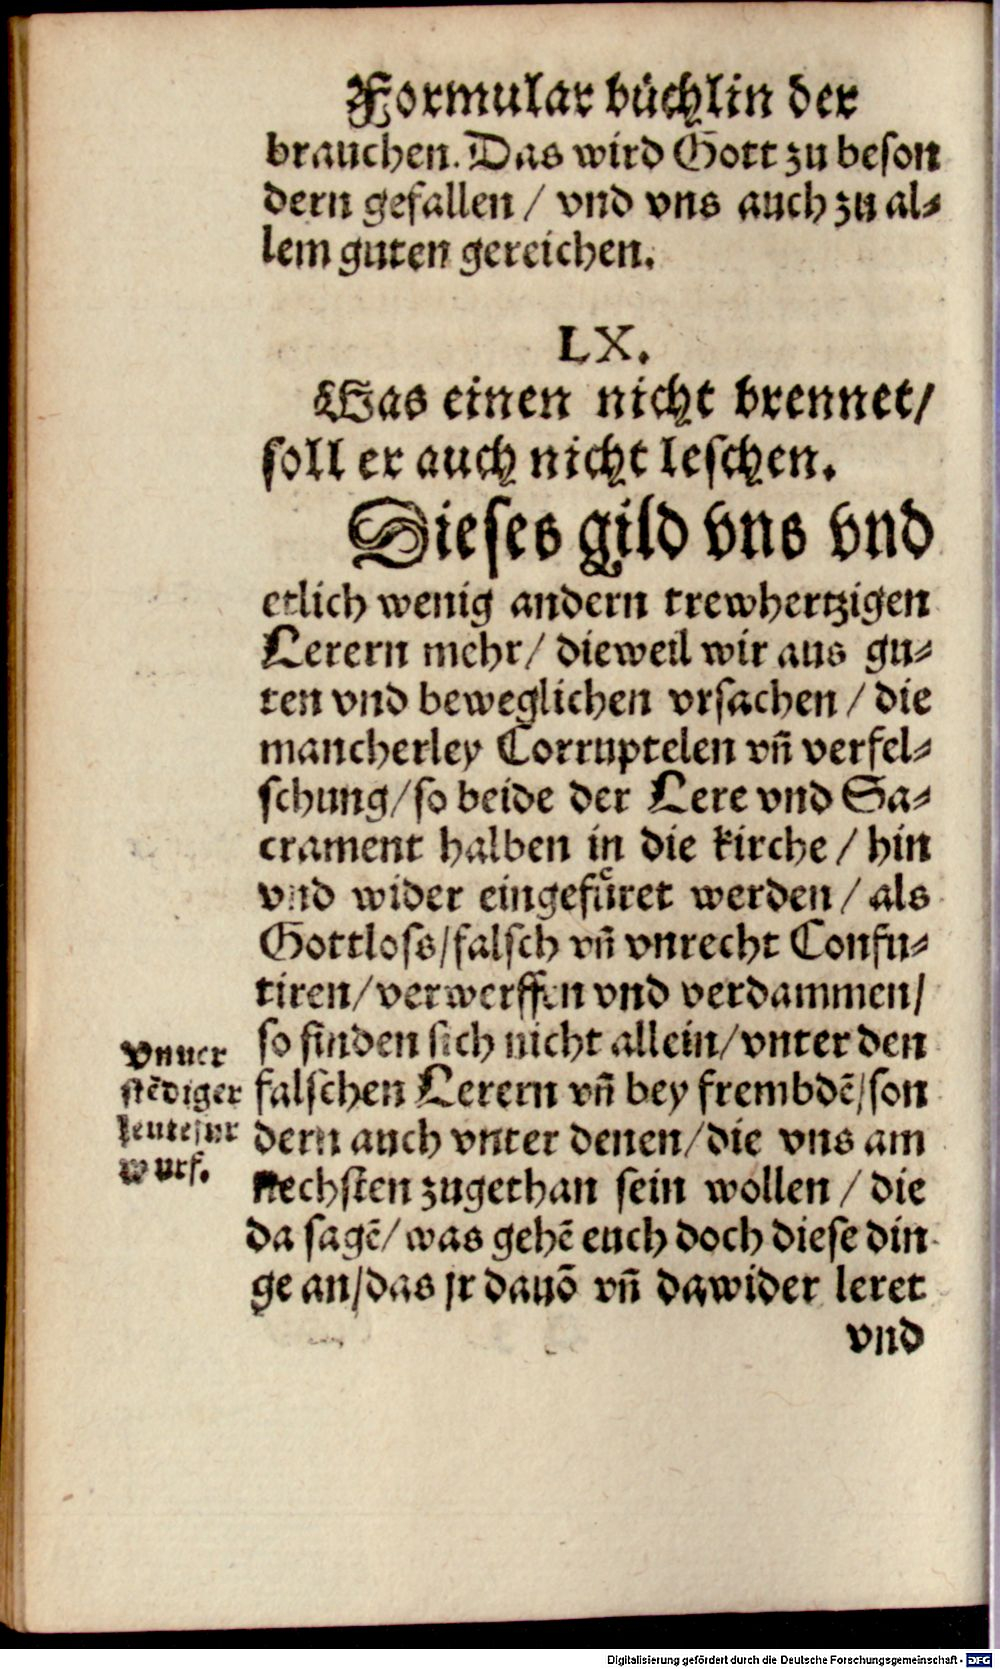 Formular büchlin der
brauchen. Das wird Gott zu beson
dern gefallen / vnd vns auch zu al⸗
lem guten gereichen.
LX.
Was einen nicht brennet/
soll er auch nicht leschen.
Dieses gild vns vnd
etlich wenig andern trewhertzigen
Lerern mehr/ dieweil wir aus gu⸗
ten vnd beweglichen vrsachen / die
mancherley Corruptelen vñ verfel⸗
schung/so beide der Lere vnd Sa⸗
crament halben in die kirche / hin
vnd wider eingefüret werden / als
Gottloss/falsch vñ vnrecht Confu⸗
tiren/verwerffen vnd verdammen/
so finden sich nicht allein/vnter den
falschen Lerern vñ bey frembdẽ/son
dern auch vnter denen/die vns am
nechsten zugethan sein wollen / die
da sagẽ/ was gehẽ euch doch diese din
ge an/das jr dauõ vñ dawider leret
vnd
Vnuer
stẽdiger
leutefur
wurf.
Digitalisierung gefördert durch die Deutsche Forschungsgemeinschaft - DFG